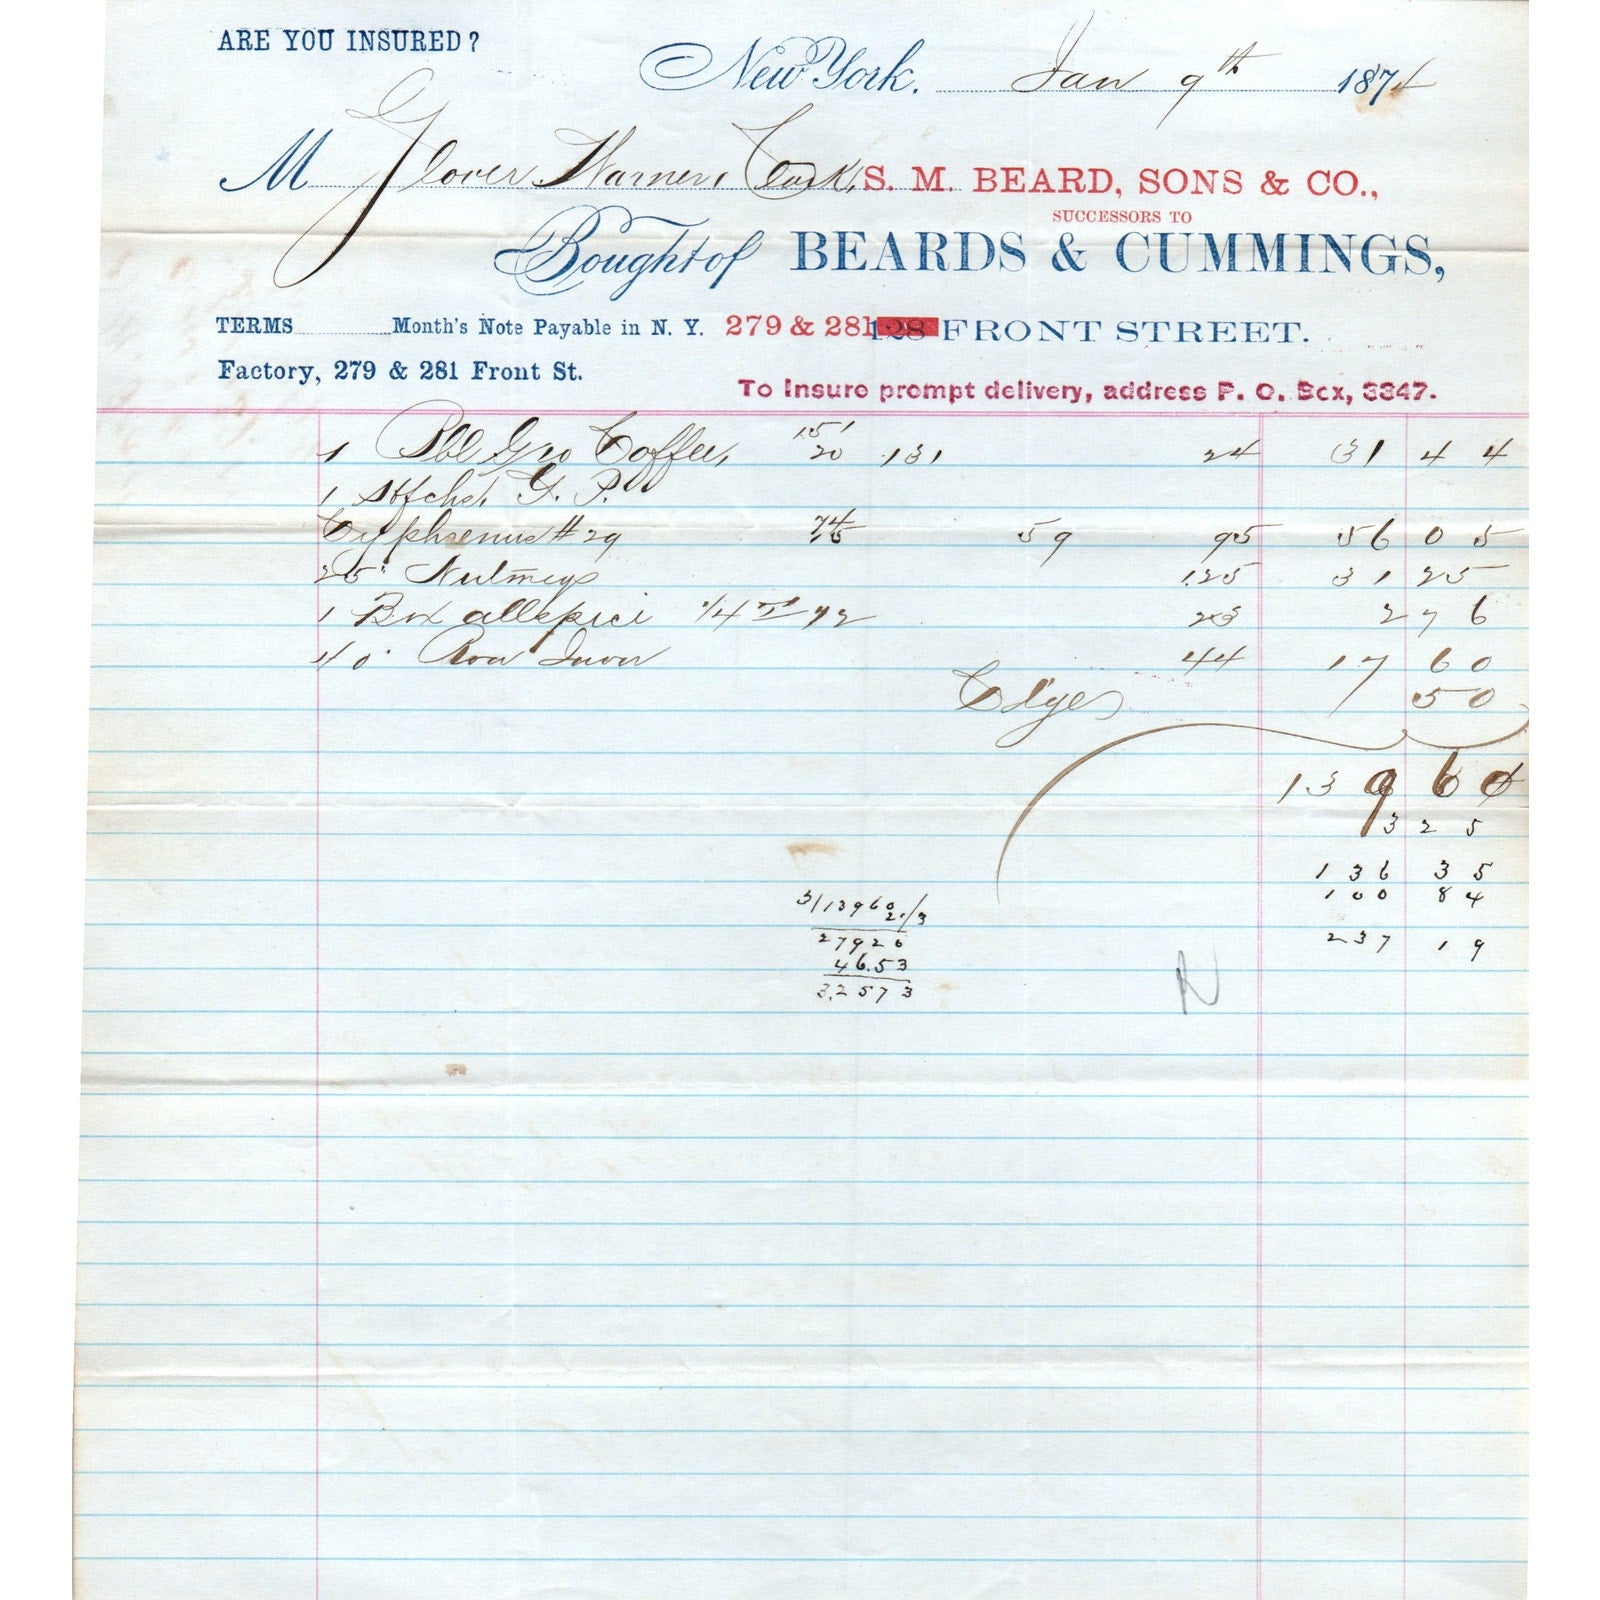 ARE YOU INSURED?
New York. Jan 9th 1874
M Glover Warner, S. M. BEARD, SONS & CO.,
SUCCESSORS TO
Bought of BEARDS & CUMMINGS,
TERMS Month's Note Payable in N. Y. 279 & 281 128 FRONT STREET.
Factory, 279 & 281 Front St.
To Insure prompt delivery, address P. O. Box, 3347.
1 Bbl Gro Coffee, 151 20 131 24 31 44
1 G. P.
#29 74 15 59 95 56 05
25 Nutmegs 125 31 25
1 Box allspice 23 2 76
40 44 17 60
50
139 60
3 25
136 35
100 84
237 19
3/13960 2 1/3
27920
46.53
3,2573
N